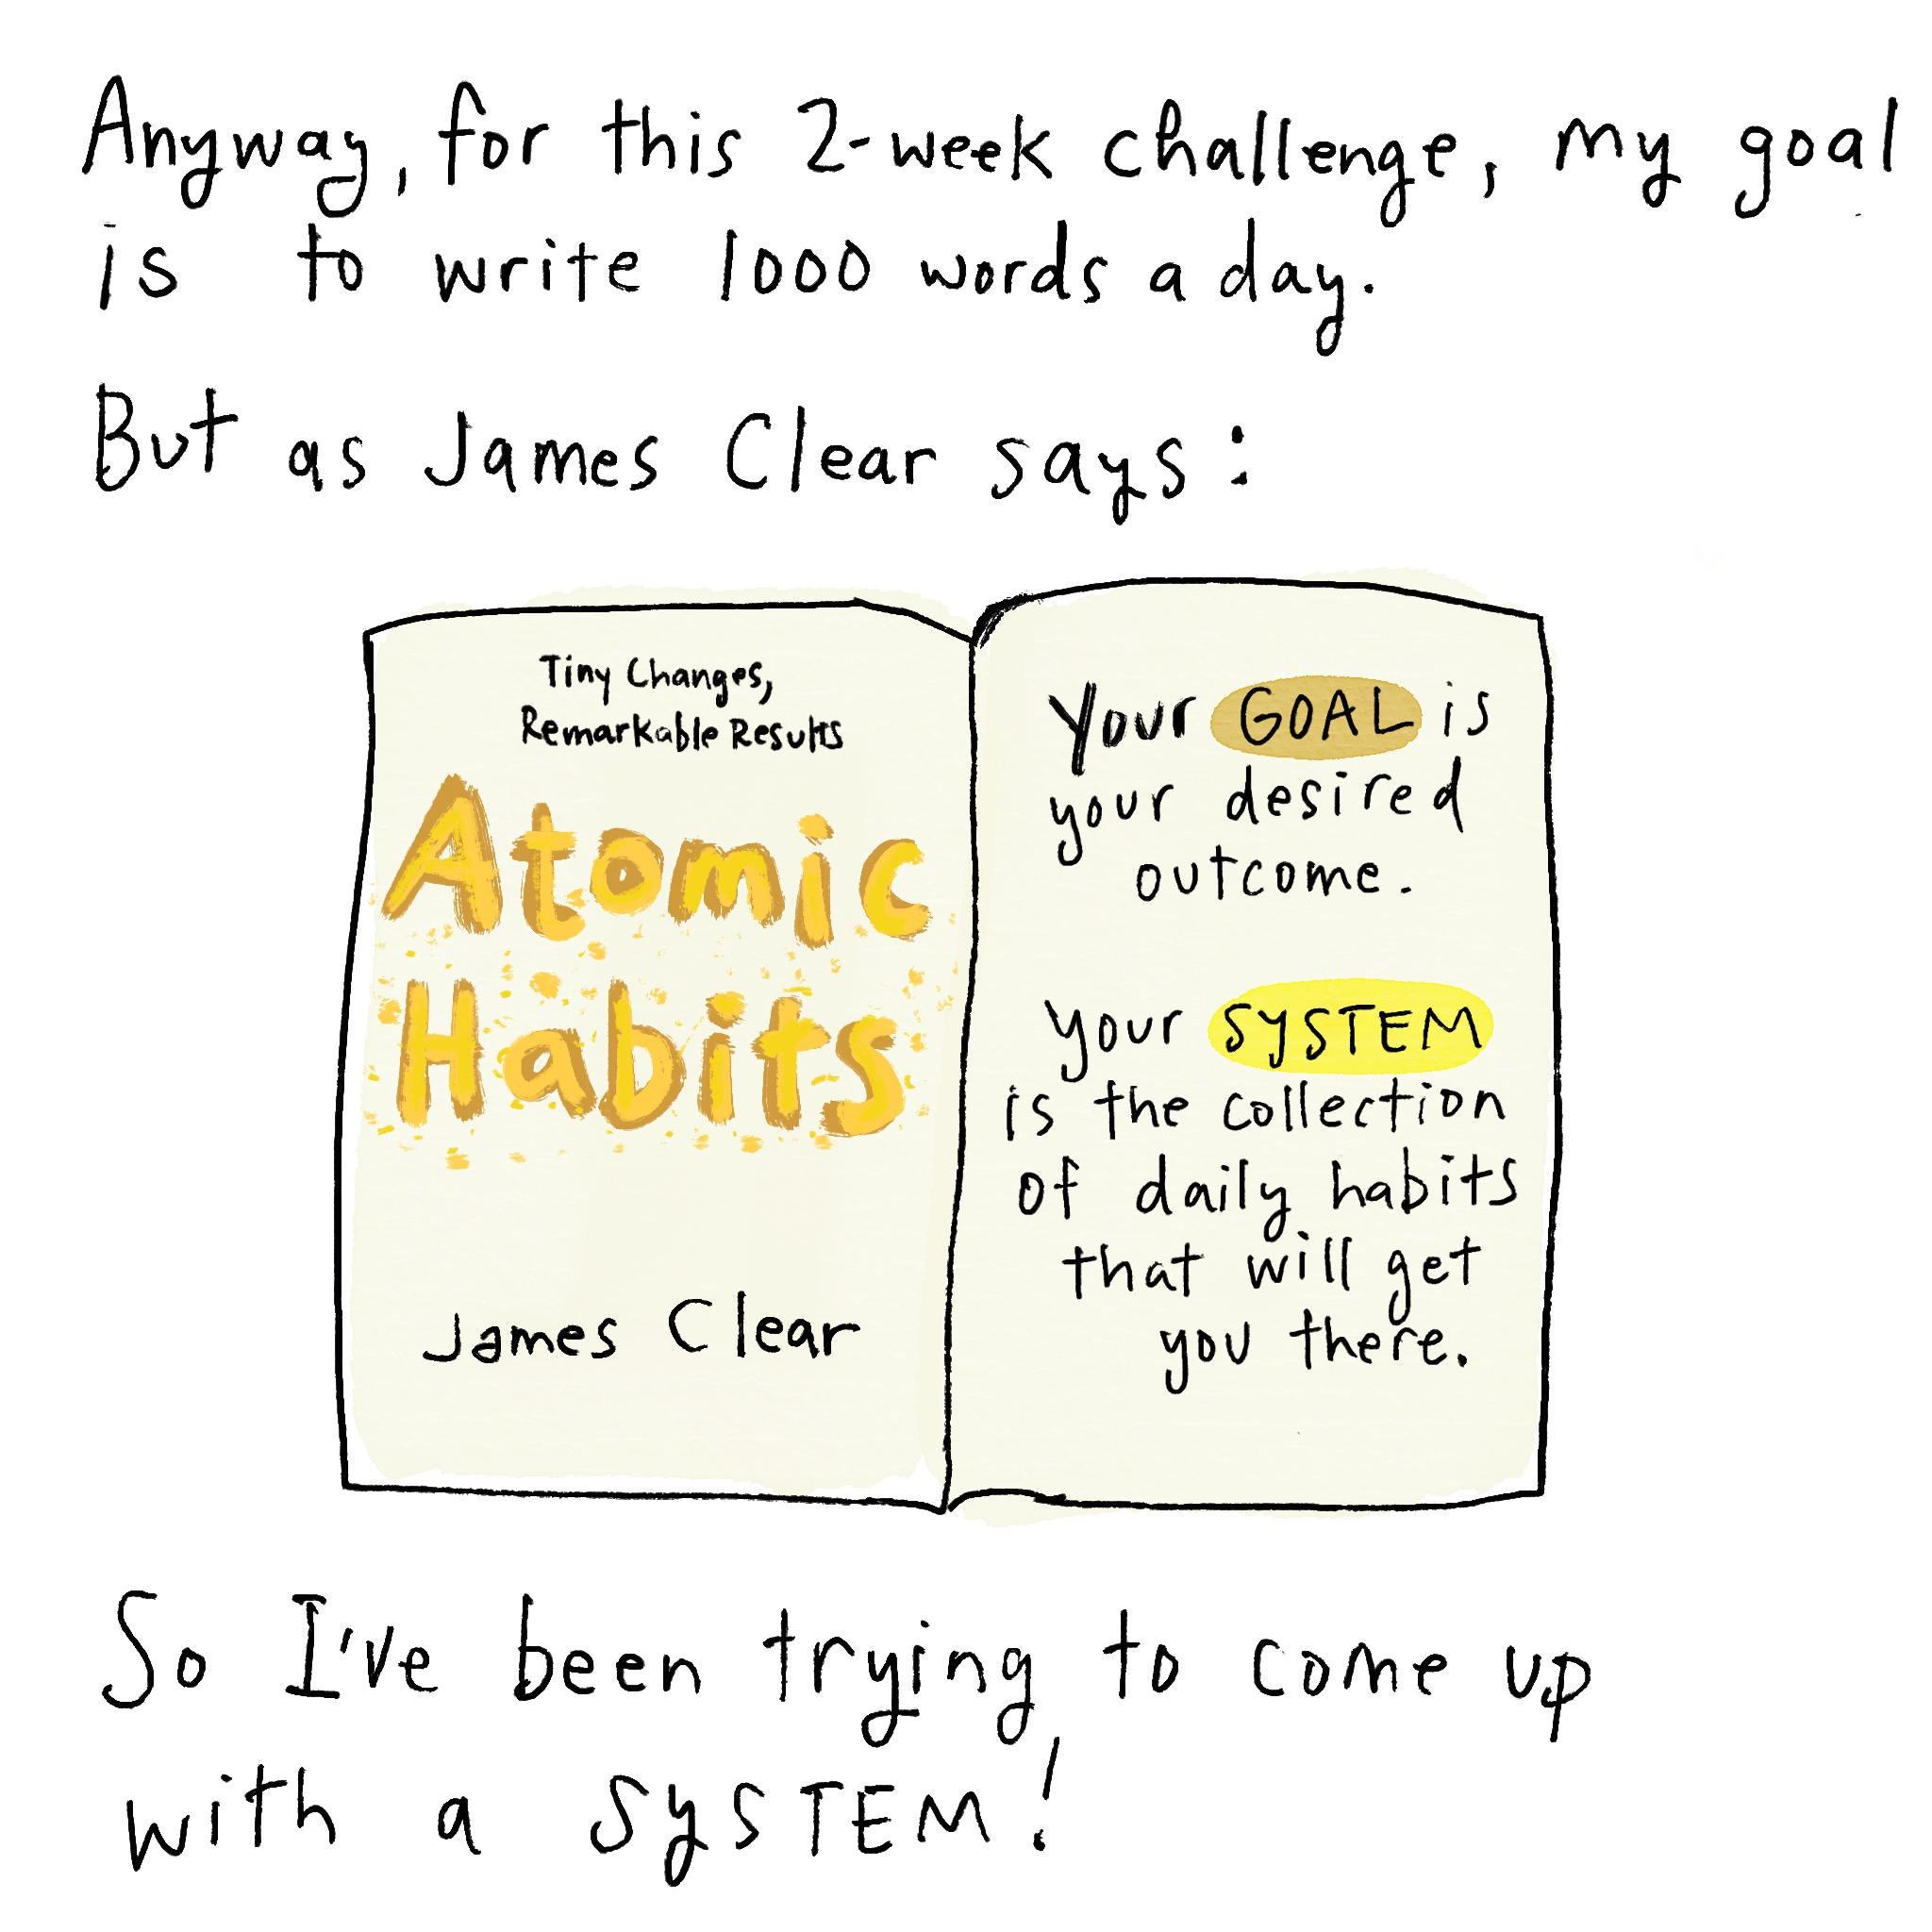 Anyway, for this 2-week challenge, my goal
is to write 1000 words a day.
But as James Clear says:
Tiny Changes,
Remarkable Results
Atomic
Habits
James Clear
Your GOAL is
your desired
outcome.
Your SYSTEM
is the collection
of daily habits
that will get
you there.
So I've been trying to come up
with a SYSTEM!